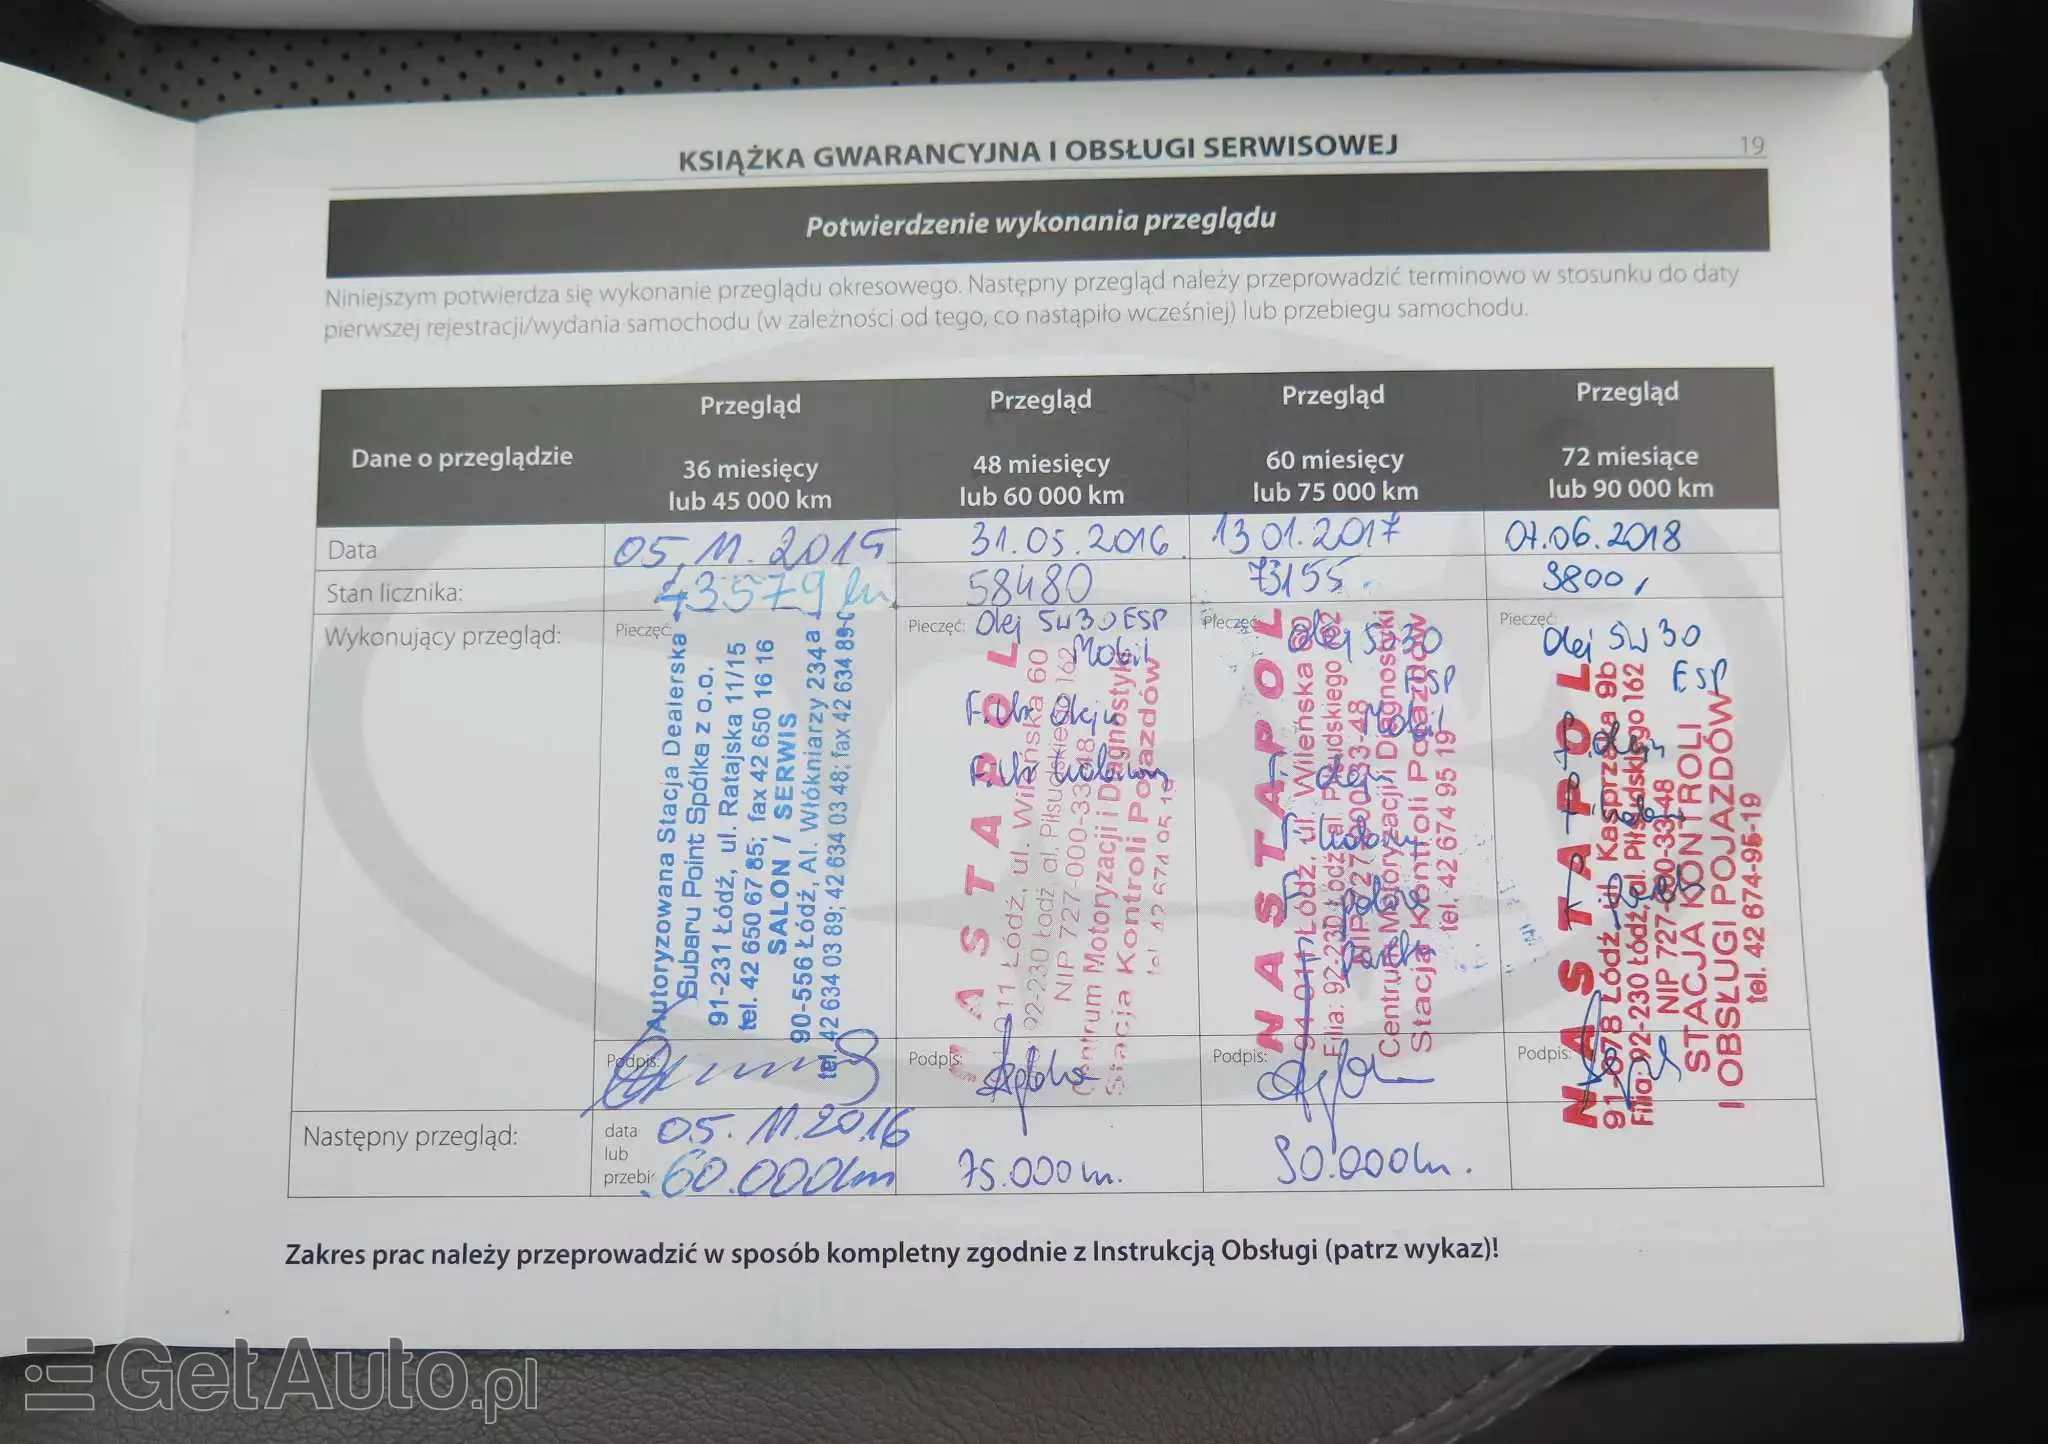 KSIĄŻKA GWARANCYJNA I OBSŁUGI SERWISOWEJ 19
Potwierdzenie wykonania przeglądu
Niniejszym potwierdza się wykonanie przeglądu okresowego. Następny przegląd należy przeprowadzić terminowo w stosunku do daty
pierwszej rejestracji/wydania samochodu (w zależności od tego, co nastąpiło wcześniej) lub przebiegu samochodu.
Dane o przeglądzie
Przegląd
36 miesięcy
lub 45 000 km
Przegląd
48 miesięcy
lub 60 000 km
Przegląd
60 miesięcy
lub 75 000 km
Przegląd
72 miesiące
lub 90 000 km
Data 05.11.2015 31.05.2016 13.01.2017 07.06.2018
Stan licznika: 43579 km 58480 73155. 9800,
Wykonujący przegląd:
Pieczęć:
Autoryzowana Stacja Dealerska
Subaru Point Spółka z o.o.
91-231 Łódź, ul. Ratajska 11/15
tel. 42 650 67 85; fax 42 650 16 16
SALON / SERWIS
90-556 Łódź, Al. Włókniarzy 234a
tel. 42 634 03 89; 42 634 03 48; fax 42 634 89
Podpis:
Pieczęć: Olej 5W30 ESP
Mobil
Filtr Oleju
ASTAPOL
011 Łódź, ul. Wileńska 60
92-230 Łódź al. Piłsudskiego 162
NIP 727-000-33-48
Centrum Motoryzacji i Diagnostyki
Stacja Kontroli Pojazdów
tel. 42 674 95 19
Podpis:
Pieczęć:
Olej 5W30
ESP
Mobil
NASTAPOL
Łódź, ul. Wileńska
Filia: 92-230 Łódź al. Piłsudskiego
Centrum Motoryzacji i Diagnostyki
Stacja Kontroli Pojazdów
tel. 42 674 95 19
Podpis:
Pieczęć:
Olej 5W30
ESP
NASTAPOL
91-078 Łódź, ul. Kasprzaka 9b
Filia: 92-230 Łódź, al. Piłsudskiego 162
NIP 727-000-33-48
STACJA KONTROLI
I OBSŁUGI POJAZDÓW
tel. 42 674-95-19
Podpis:
Następny przegląd:
data 05.11.2016
lub
przebi 60.000km
75.000km.
90.000km.
Zakres prac należy przeprowadzić w sposób kompletny zgodnie z Instrukcją Obsługi (patrz wykaz)!
GetAuto.pl